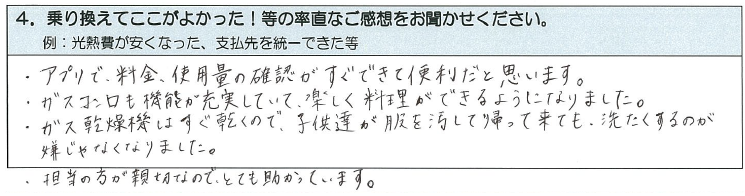 4．乗り換えてここがよかった！等の率直なご感想をお聞かせください。
例：光熱費が安くなった、支払先を統一できた等
・アプリで、料金、使用量の確認がすぐできて便利だと思います。
・ガスコンロも機能が充実していて、楽しく料理ができるようになりました。
・ガス乾燥機はすぐ乾くので、子供達が服を汚して帰って来ても、洗たくするのが
嫌じゃなくなりました。
・担当の方が親切なので、とても助かっています。